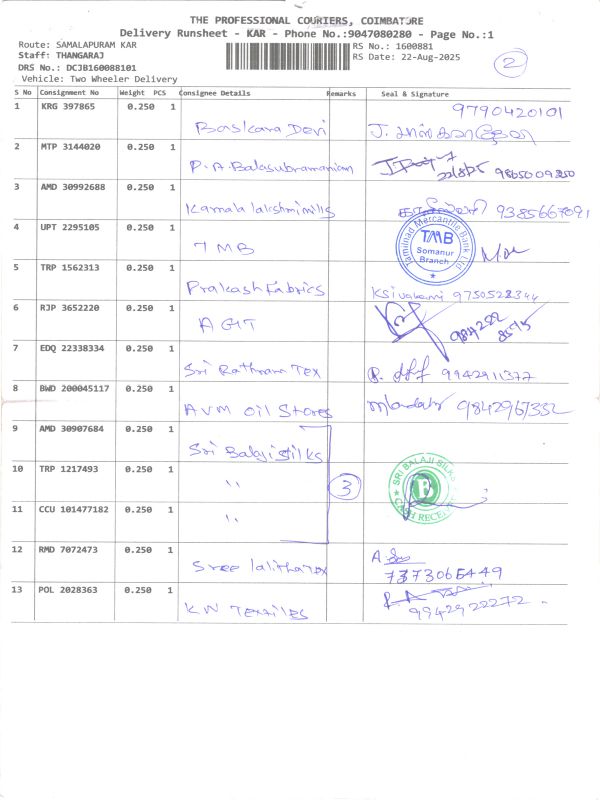 THE PROFESSIONAL COURIERS, COIMBATORE
Delivery Runsheet - KAR - Phone No.:9047080280 - Page No.:1
Route: SAMALAPURAM KAR
RS No.: 1600881
Staff: THANGARAJ
RS Date: 22-Aug-2025
2
DRS No.: DCJB160088101
Vehicle: Two Wheeler Delivery
S No Consignment No Weight PCS Consignee Details Remarks Seal & Signature
1 KRG 397865 0.250 1 Baskara Devi 9790420101
2 MTP 3144020 0.250 1 P.A. Balasubramaniam
3 AMD 30992688 0.250 1 Kamala lakshmi mills 9385667091
4 UPT 2295105 0.250 1 TMB Tamilnad Mercantile Bank Ltd TMB Somanur Branch
5 TRP 1562313 0.250 1 Prakash Fabrics 9750528344
6 RJP 3652220 0.250 1 AGIT
7 EDQ 22338334 0.250 1 Sri Rathnam Tex 9942911377
8 BWD 200045117 0.250 1 AVM Oil Stores 9842967352
9 AMD 30907684 0.250 1 Sri Balaji silks
10 TRP 1217493 0.250 1 " 3 SRI BALAJI SILKS B CASH RECEI
11 CCU 101477182 0.250 1 "
12 RMD 7072473 0.250 1 Sree lalitha Tex 7373065449
13 POL 2028363 0.250 1 KN Textiles 9942922272